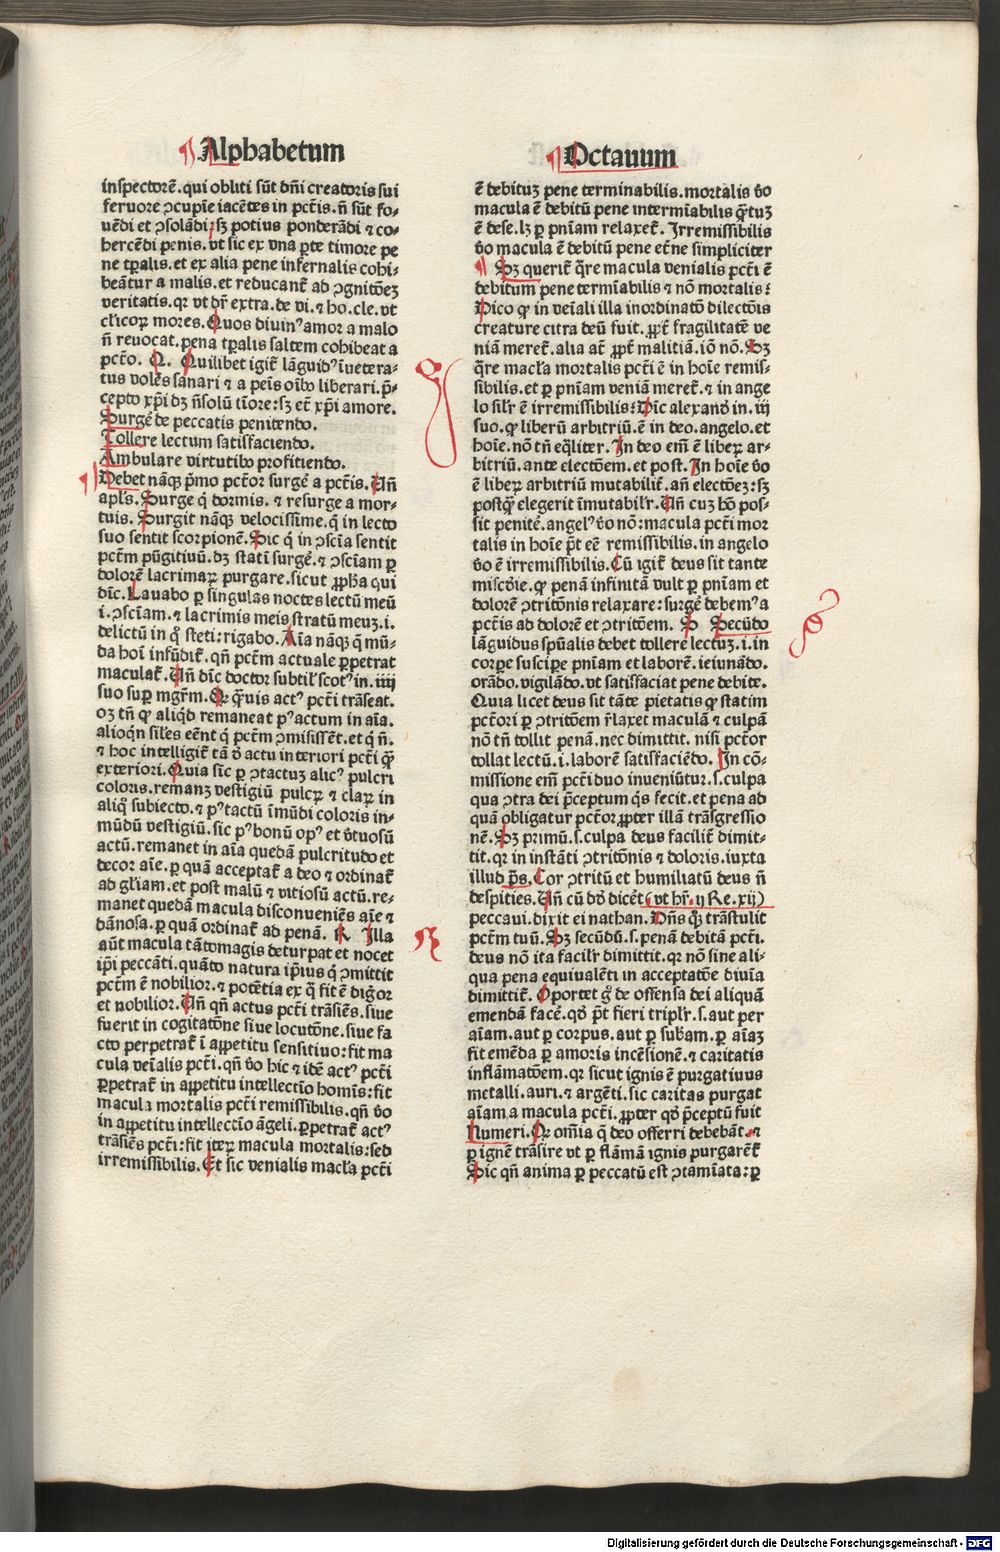 Alphabetum
inspectorē.qui obliti sūt dn̄i creatoris sui
feruore ꝯcupīe iacētes in pctīs.n̄ sūt fo-
uēdi et ꝯsolādi:sꝫ potius ponderādi ⁊ co-
hercēdi penis.vt sic ex vna ꝑte timore pe
ne tꝑalis.et ex alia pene infernalis cohi-
beātur a malis.et reducant̄ ad ꝯgnitōeꝫ
veritatis.qꝛ vt dr̄ extra.de vi.⁊ ho.cle.vt
cl̄icoꝝ mores.Quos diuinꝰ amor a malo
n̄ reuocat.pena tꝑalis saltem cohibeat a
pctō. Q. Quilibet igit̄ lāguidꝰ īuetera-
tus volēs sanari ⁊ a peīs oībꝰ liberari.p̄-
cepto xp̄i dꝫ n̄solū tīore:sꝫ et̄ xp̄i amore.
Surgē de peccatis penitendo.
Tollere lectum satisfaciendo.
Ambulare virtutibꝰ profitiendo.
Debet nāqꝫ p̄mo pctōr surgē a pctīs.Vn̄
apl̄s.Surge q̇ dormis. ⁊ resurge a mor-
tuis. Surgit nāqꝫ velocissīme.q̇ in lecto
suo sentit scorpionē.Sic q̇ in ꝯscīa sentit
pctm̄ pūgitiuū.dꝫ statī surgē.⁊ ꝯscīam ꝑ
dolorē lacrimaꝝ purgare.sicut ꝓpha qui
dīc.Lauabo ꝑ singulas noctes lectū meū
i.ꝯscīam.⁊ lacrimis meis stratū meuꝫ.i.
delictū in q̊ steti:rigabo.Aīa nāqꝫ q̄ mū-
da hoī infūdit̄.qn̄ pctm̄ actuale ꝑpetrat
maculat̄.Vn̄ dīc doctor subtil̄ scotꝰ in.iiij
suo suꝑ mgr̄m.Qꝛ q̄uis actꝰ pctī trāseat.
oꝫ tn̄ ꝙ aliqd̄ remaneat pꝰ actum in aīa.
alioqn̄ sil̄es eēnt q̇ pctm̄ ꝯmisissēt.et q̇ n̄.
⁊ hoc intelligit̄ tā d̄ actu interiori pctī q̄ꝫ
exteriori.Quia sīc ꝑ ꝯtactuꝫ alicꝰ pulcri
coloris.remanꝫ vestigiū pulcꝝ ⁊ claꝝ in
aliq̊ subiecto.⁊ pꝰ tactū īmūdi coloris in-
mūdū vestigiū.sic pꝰ bonū opꝰ et v̄tuosū
actū.remanet in aīa quedā pulcritudo et
decor aīe.ꝑ quā acceptat̄ a deo ⁊ ordinat̄
ad gl̄iam.et post malū ⁊ vitiosū actū.re-
manet quedā macula disconueniēs aīe ⁊
dānosa.ꝑ quā ordinat̄ ad penā. R Illa
aūt macula tātomagis deturpat et nocet
ip̄i peccāti.quāto natura ip̄ius q̇ ꝯmittit
pctm̄ ē nobilior.⁊ potētia ex q̄ fit ē dig̊or
et nobilior.Vn̄ qn̄ actus pctī trāsiēs.siue
fuerit in cogitatōne siue locutōne.siue fa
cto perpetrat̄ ī appetitu sensitiuo:fit ma
cula veīalis pctī.qn̄ v̄o hic ⁊ idē actꝰ pctī
ꝑpetrat̄ in appetitu intellectīo homīs:fit
macula mortalis pctī remissibilis.qn̄ v̄o
in appetitu intellectīo āgeli.ꝑpetrat̄ actꝰ
trāsiēs pctī:fit iteꝝ macula mortalis:sed
irremissibilis.Et sic venialis macl̄a pctī
g
R
Octauum
ē debituꝫ pene terminabilis.mortalis v̄o
macula ē debitū pene intermīabilis q̄tuꝫ
ē dese.lꝫ ꝑ pn̄iam relaxet̄. Irremissibilis
v̄o macula ē debitū pene et̄ne simpliciter
Sꝫ querit̄ q̄re macula venialis pctī ē
debitum pene termīabilis ⁊ nō mortalis?
Dico ꝙ in veīali illa inordinatō dilectōis
creature citra deū fuit.ꝓpt̄ fragilitatē ve
niā meret̄.alia at̄ ꝓpt̄ malitiā.iō nō.Sꝫ
q̄re macl̄a mortalis pctī ē in hoīe remis-
sibilis.et ꝑ pn̄iam veniā meret̄.⁊ in ange
lo sil̄r ē irremissibilis?Dīc alexand̄ in.iij
suo.ꝙ liberū arbitriū.ē in deo.angelo.et
hoīe.nō tn̄ eq̄liter.In deo em̄ ē libeꝝ ar-
bitriū.ante electōem.et post.In hoīe v̄o
ē libeꝝ arbitriū mutabilit̄.an̄ electōeꝫ:sꝫ
postqꝫ elegerit īmutabil̄r.Vn̄ cuꝫ hō pos-
sit penitē.angelꝰ v̄o nō:macula pctī mor
talis in hoīe pt̄ eē remissibilis.in angelo
v̄o ē irremissibilis.Cū igit̄ deus sit tante
miscd̄ie.ꝙ penā infinitā vult ꝑ pn̄iam et
dolorē ꝯtritōnis relaxare:surgē debemꝰ a
pctīs ad dolorē et ꝯtritōem. S Secūdo
lāguidus spūalis debet tollere lectuꝫ.i.in
corꝑe suscipe pn̄iam et laborē.ieiunādo.
orādo.vigilādo.vt satisfaciat pene debite.
Quia licet deus sit tāte pietatis ꝙ statim
pctōri ꝑ ꝯtritōem r̄laxet maculā ⁊ culpā
nō tn̄ tollit penā.nec dimittit. nisi pctōr
tollat lectū.i.laborē satisfaciēdo. In cō-
missione em̄ pctī duo inueniūtur.s.culpa
qua ꝯtra dei p̄ceptum q̇s fecit.et pena ad
quā obligatur pctōr ꝓpter illā trāsgressio
nē.Sꝫ primū.s.culpa deus facilit̄ dimit-
tit.qꝛ in instāti ꝯtritōnis ⁊ doloris.iuxta
illud p̄s.Cor ꝯtritū et humiliatū deus n̄
despities.Vn̄ cū dd̄ dicēt(vt hr̄.ij Re.xij)
peccaui.dixit ei nathan.Dn̄s q̊ꝫ trāstulit
pctm̄ tuū.Sꝫ secūdū.s.penā debitā pctī.
deus nō ita facilr̄ dimittit.qꝛ nō sine ali-
qua pena equiualēti in acceptatōe diuīa
dimittit̄. Oportet g̊ de offensa dei aliquā
emendā facē.qd̄ pt̄ fieri tripl̄r.s.aut per
aīam.aut ꝑ corpus.aut ꝑ sub̄am.ꝑ aīaꝫ
fit emēda ꝑ amoris incēsionē.⁊ caritatis
inflāmatōem.qꝛ sicut ignis ē purgatiuus
metalli.auri.⁊ argēti.sic caritas purgat
aīam a macula pctī.ꝓpter qd̄ p̄ceptū fuit
Numeri.Qꝛ om̄ia q̄ deo offerri debebāt.⁊
ꝑ ignē trāsire vt ꝑ flāmā ignis purgarēt̄
Sic qn̄ anima ꝑ peccatū est ꝯtamīata:ꝑ
S
Digitalisierung gefördert durch die Deutsche Forschungsgemeinschaft - DFG